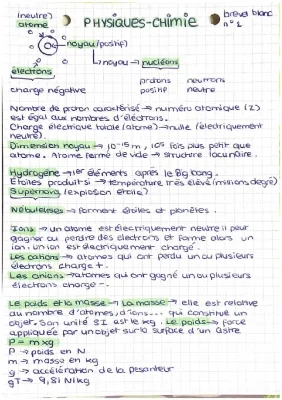 (neutre)
atome
PHYSIQUES-CHIMIE
brevet blanc
n°1
noyau (positif)
noyau → nucléons
électrons
protons neutrons
charge négative positif neutre
Nombre de proton caractérisé → numéro atomique (Z)
est égal aux nombres d'électrons.
Charge électrique totale (atome) → nulle (électriquement
neutre).
Dimension noyau → 10⁻¹⁵ m, 10⁵ fois plus petit que
atome. Atome formé de vide → structure lacunaire.
Hydrogène → 1er éléments après le Big bang.
Étoiles produit si → température très élevé (millions degré)
Supernova (explosion étoile)
Nébuleuses → forment étoiles et planètes.
Ions → un atome est électriquement neutre il peut
gagner ou perdre des électrons et forme alors un
ion. Un ion est électriquement chargé.
Les cations → atomes qui ont perdu un ou plusieurs
électrons charge +.
Les anions → atomes qui ont gagné un ou plusieurs
électrons charge -.
Le poids et la masse → La masse → elle est relative
au nombre d'atomes, d'ions... qui constitue un
objet. Son unité SI est le kg. Le poids → force
appliquée par un objet sur la surface d'un astre.
P = m x g
P → poids en N
m → masse en kg
g → accélération de la pesanteur
gT → 9,81 N/kg